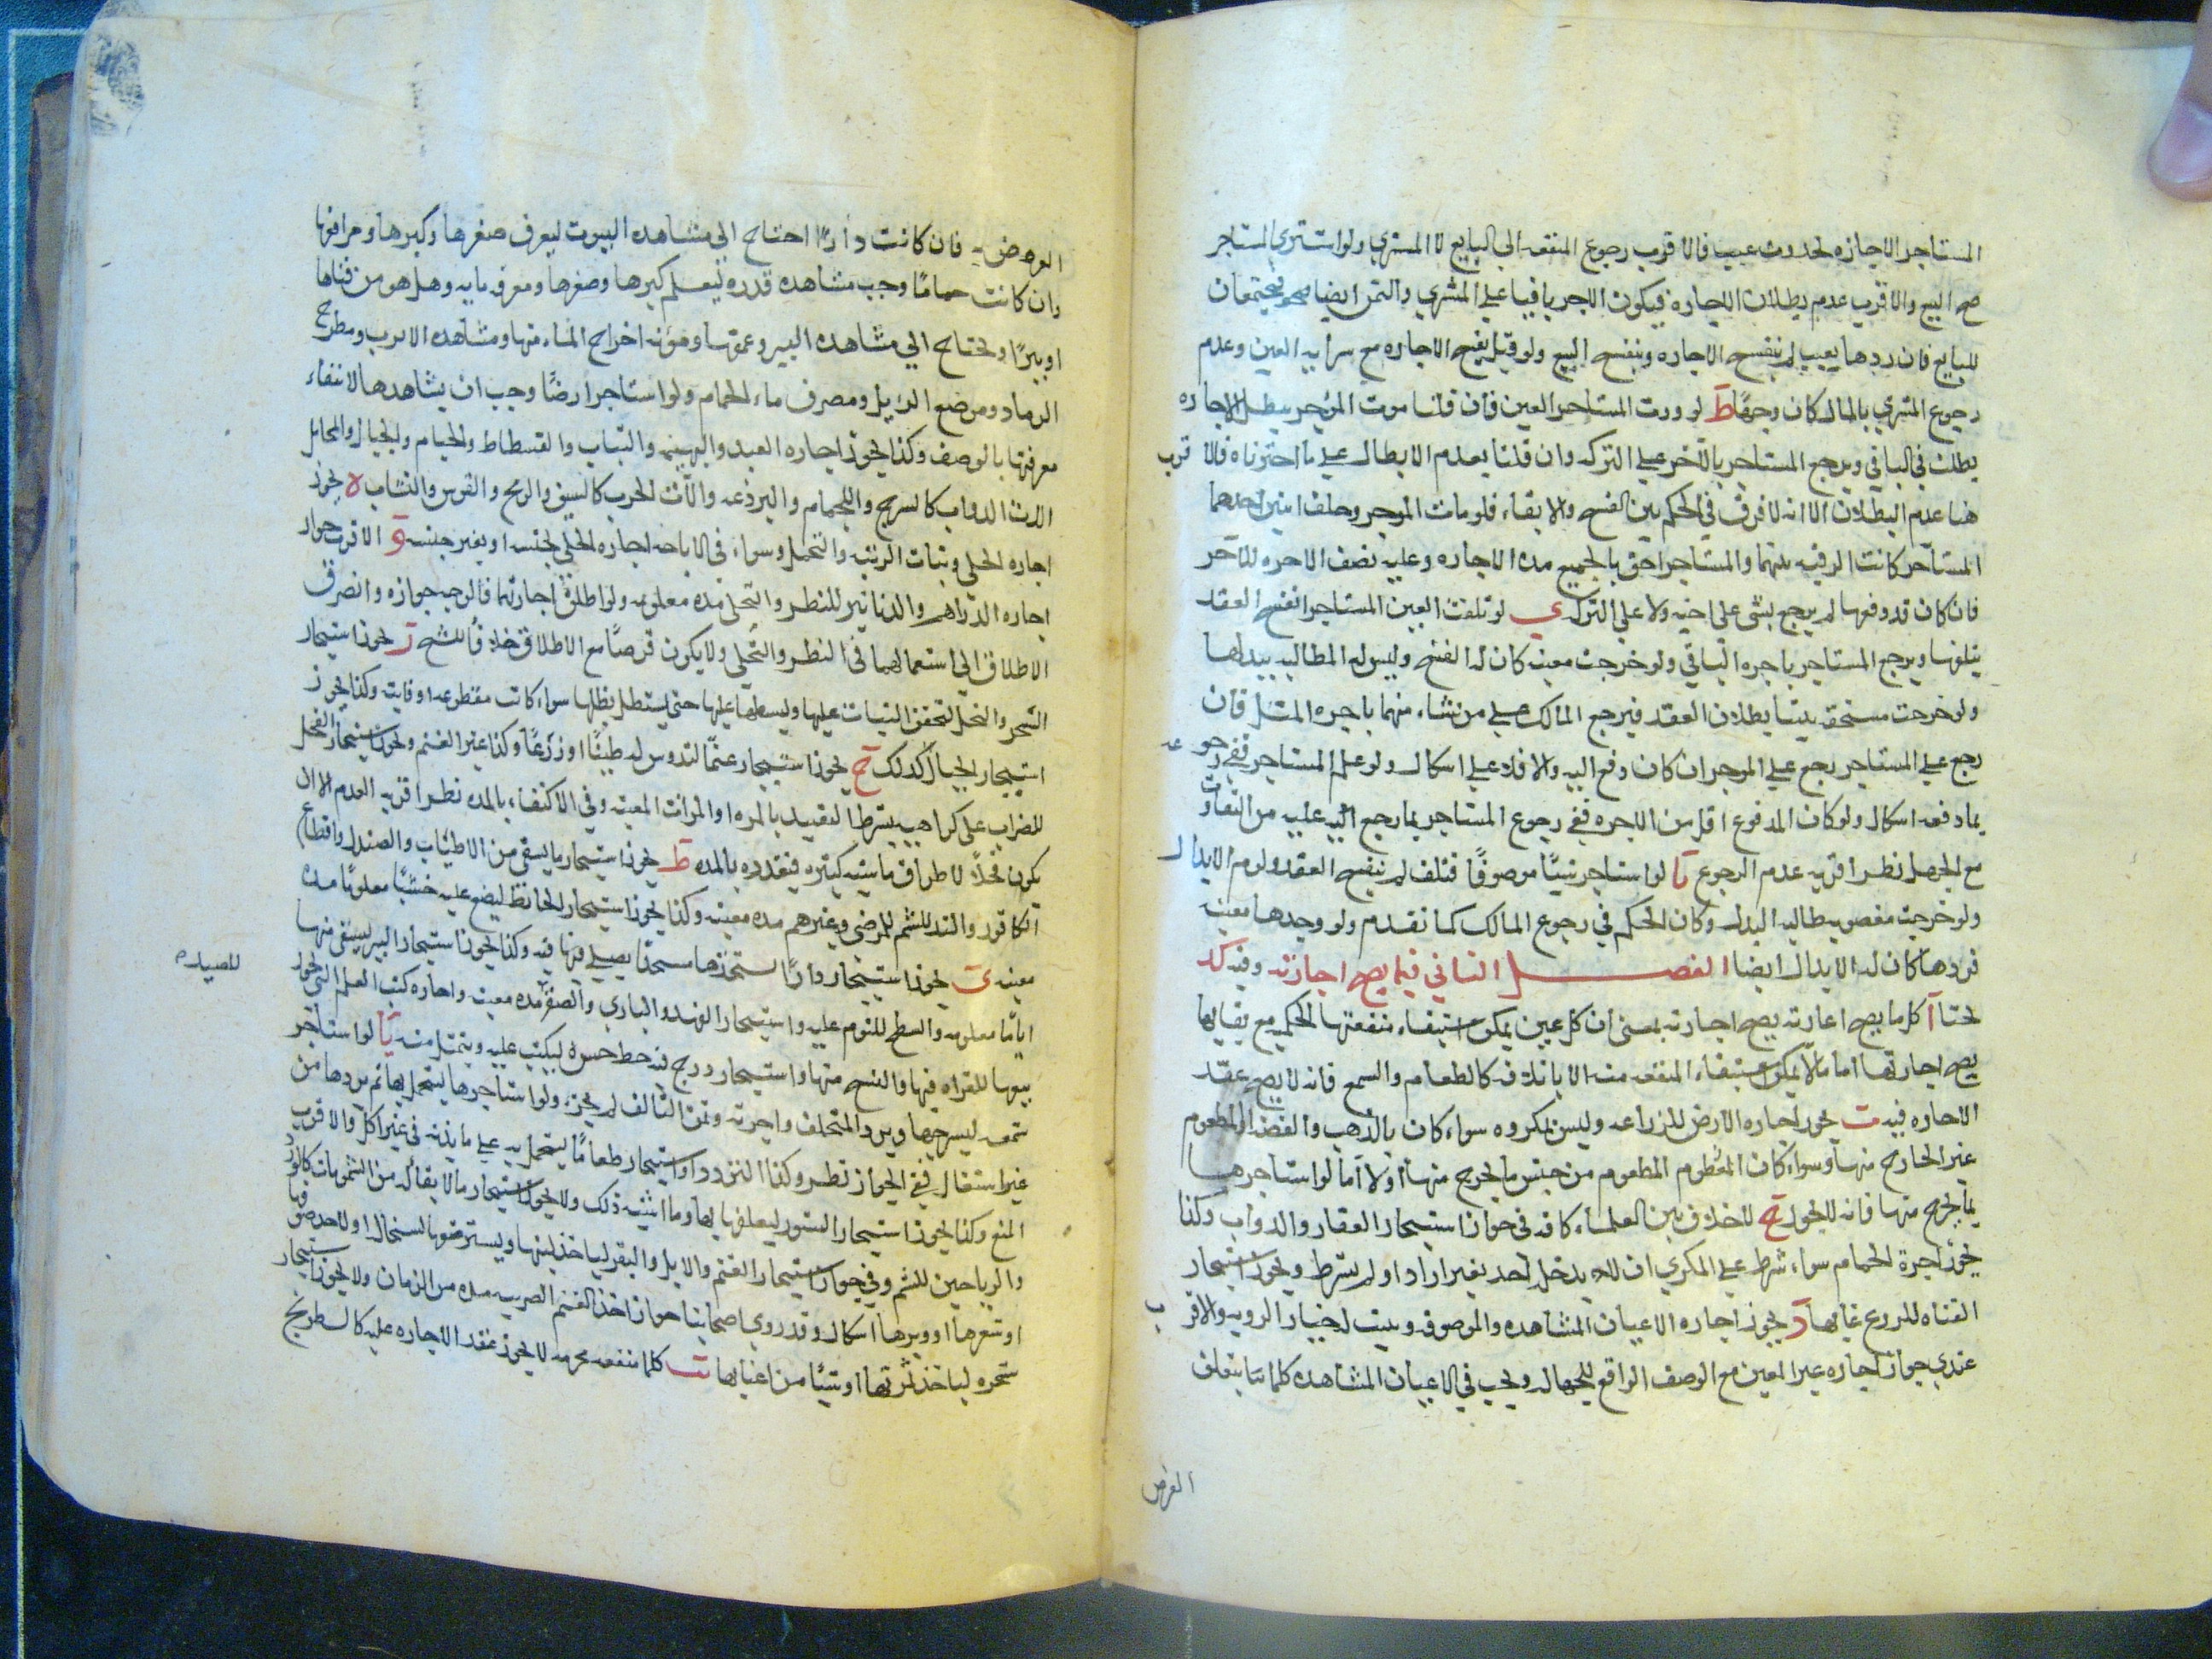 المستاجر الاجاره لحدوث عيب فالاقرب رجوع المنفعه الى البايع لا المشتري ولو اشترى المستاجر
صح البيع والاقرب عدم بطلان الاجاره فيكون الاجر باقيا على المشتري والثمن ايضا فيجتمعان
للبايع فان ردها بعيب لم ينفسح الاجاره وينفسح البيع ولو قيل بفسح الاجاره مع سرايه العين وعدم
رجوع المشتري بالمال كان وجهًا ط لو ورث المستاجر العين فان قلنا موت المؤجر يبطل الاجاره
بطلت في الباقي ويرجع المستاجر بالاخر على التركه وان قلنا بعدم الابطال على ما اخترناه فالاقرب
هنا عدم البطلان الا انه لا فرق في الحكم بين الفسح والابقاء فلو مات الموجر وخلف ابنين احدهما
المستاجر كانت الرقبه بينهما والمستاجر احق بالجميع مدة الاجاره وعليه نصف الاجره للاخر
فان كان قد دفعها لم يرجع بشي على اخيه ولا على التركه ي لو تلفت العين المستاجر انفسح العقد
بتلفها ويرجع المستاجر باجره الباقي ولو خرجت معيبه كان له الفسح وليس له المطالبه ببدلها
ولو خرجت مستحقه بينا بطلان العقد فيرجع المالك على من شاء منهما باجره المثل فان
رجع على المستاجر رجع على الموجر ان كان دفع اليه والا فلا على اشكال ولو علم المستاجر ففي رجوعه
بما دفعه اشكال ولو كان المدفوع اقل من الاجره ففي رجوع المستاجر بما رجع اليه عليه من التفاوت
مع الجهل نظر اقربه عدم الرجوع يا لو استاجر شيئًا موصوفًا فتلف لم ينفسح العقد ولزم الابدال
ولو خرجت مغصوبه طالبه البدل وكان الحكم في رجوع المالك كما تقدم ولو وجدها معيبه
فردها كان له الابدال ايضا الفصل الثاني فيما يصح اجازته وفيه كد
بحثا آ كل ما يصح اعارته يصح اجارته بمعنى ان كل عين يمكن استيفاء منفعتها الحكميه مع بقايها
يصح اجارتها اما ما لا يمكن استيفاء المنفعه منه الا باتلافه كالطعام والسمع فانه لا يصح عقد
الاجاره فيه ب يجوز اجاره الارض للزراعه وليس بمكروه سواء كان بالذهب والفضه او المطعوم
غير الخارج منها وسواء كان المطعوم من جنس ما يخرج منها اولا اما لو استاجرها
بما يخرج منها فانه لا يجوز ج لا خلاف بين العلماء كافه في جواز استيجار العقار والدواب وكذا
يجوز اجرة الحمام سواء شرط على المكري ان لا يدخل احد بغير اراد او لم يشرط ويجوز استيجار
القناه للزرع بمايها د يجوز اجاره الاعيان المشاهده والموصوفه ويثبت خيار الرويه والاقرب
عندي جواز اجاره غير المعين مع الوصف الرافع للجهاله ويجب في الاعيان المشاهده كلما يتعلق
العرض
العرض به فان كانت دارًا احتاج الى مشاهده البيوت ليعرف صغرها وكبرها ومرافقها
وان كانت حمامًا وجب مشاهده قدره ليعلم كبرها وصغرها ومعرفه مايه وهل هو من قناها
او بيرًا ويحتاج الى مشاهده البير وعمقها ومؤنه اخراج الماء منها ومشاهده الاتون ومطرح
الرماد وموضع الزبيل ومصرف ماء الحمام ولو استاجر ارضًا وجب ان يشاهدها لانتفاء
معرفتها بالوصف وكذا يجوز اجاره العبد والبهيمه والثياب والفسطاط والخيام والجبال والمحامل
الات الدواب كالسرج واللجام والبرذعه والات الحرب كالسيف والرمح والقوس والنشاب ه يجوز
اجاره الحلي وثبات الزينه والتجمل وسواء في الاباحه اجاره الحلي بجنسه او بغير جنسه و الاقرب جواز
اجاره الدراهم والدنانير للنظر والتحلي مده معلومه ولو اطلق اجارتهما فالوجه جوازه وانصرف
الاطلاق الى استعمالهما في النظر والتحلي ولا يكون قرضًا مع الاطلاق خلافًا للشيخ ز يجوز استيجار
الشجر والنخل لتجفف الثياب عليها وبسطها عليها حتى يستظل بظلها سواء كانت مقطوعه او قايت وكذا يجوز
استيجار الجبال كذلك ح يجوز استيجار غنمًا لتدوس له طينًا او زرعًا وكذا غير الغنم ويجوز استيجار الفحل
للضراب على كراهيه بشرط التقييد بالمره او المرات المعينه وفي الاكتفاء بالمده نظر اقربه العدم الا ان
يكون فحلًا لاطراق ماشيه كثيره فيقدره بالمده ط يجوز استيجار ما يبقى من الاطياب والصندل واقطاع
الكافور والند للشم للمرضى وغيرهم مده معينه وكذا يجوز استيجار الحائط ليضع عليه خشبًا معلومًا مده
معينه ى يجوز استيجار دارًا يتخذها مسجدًا يصلي فيها فيه وكذا يجوز استيجار البير ليستقي منها
ايامًا معلومه والسطح للنوم عليه واستيجار الفهد والبازي والصقر للصيد مده معينه واجاره كتب العلم التي يجوز
بيعها للقراه فيها والنسح منها واستيجار درج فيه خط حسن ليكتب عليه ويتمثل منه يآ لو استاجر
شمعه ليسرجها ويرد المتخلف واجرته وثمن التالف لم يجز ولو استاجرها ليتجمل بها ثم يردها من
غير اشتعال ففي الجواز نظر وكذا التردد لو استيجار طعامًا ليتجمل به على مايدته في غير اكل والاقرب
المنع وكذا يجوز استيجار الستور ليعلقها بها وما اشبه ذلك ولا يجوز استيجار ما لا بقاء له من المشمومات كالورد
والرياحين للشم وفي جواز استيجار الغنم والابل والبقر لياخذ لبنها ويسترضعها لسخال او لاخذ صوفها
او شعرها او وبرها اشكال وقد روى اصحابنا جواز اخذ الغنم الضريبه مده من الزمان ولا يجوز استيجار
شجره لياخذ ثمرتها او شيئًا من اعيانها يب كلما منفعه محرمه لا يجوز عقد الاجاره عليه كالشطرنج
للصيد